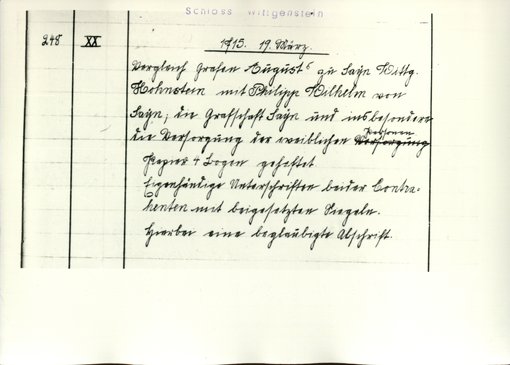 Schloss Wittgenstein
248 XX 1715. 19. März.
Vergleich Grafen August's zu Sayn Wittg.
Hohnstein mit Philipp Wilhelm von
Sayn, die Grafschaft Sayn und insbesondere
die Versorgung der weiblichen Versorgung Personen
Papier 4 Bogen geheftet
Eigenhändige Unterschriften beider Contra-
henten mit beigesetzten Siegeln.
Hierbei eine beglaubigte Abschrift.